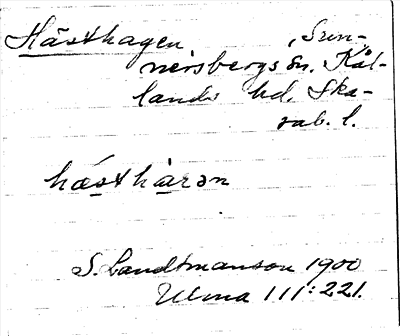 Hästhagen, Sun-
nersbergs sn. Kål-
lands hd. Ska-
rab. l.
hästhàʒən
S. Landtmanson 1900
Ulma 111:221.